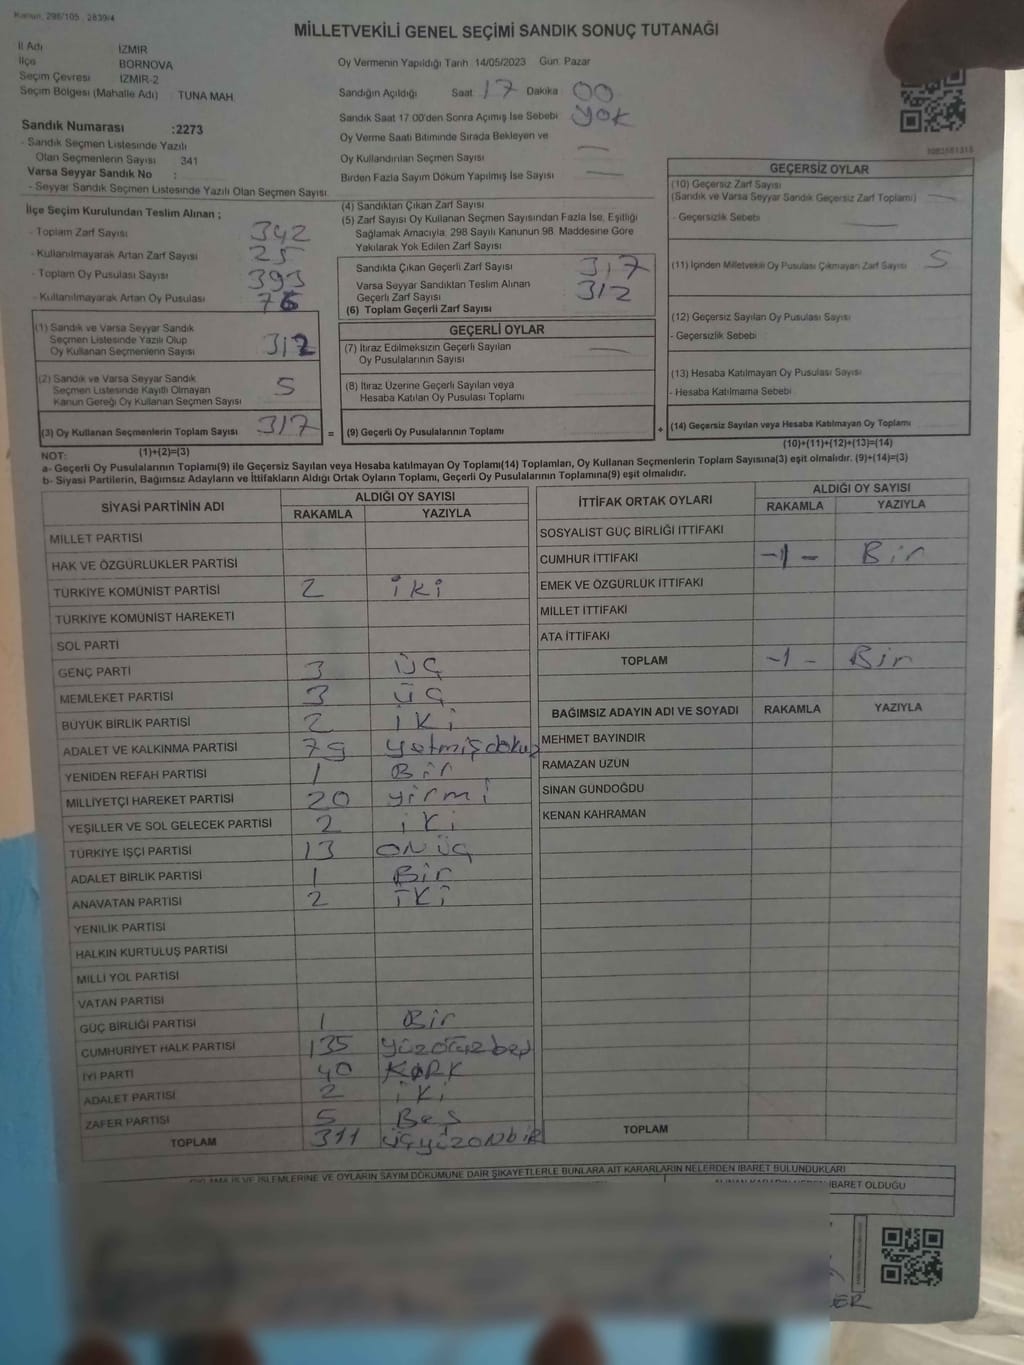 Kanun, 298/105 , 2839/4
MİLLETVEKİLİ GENEL SEÇİMİ SANDIK SONUÇ TUTANAĞI
İl Adı İZMİR
İlçe BORNOVA
Seçim Çevresi İZMİR-2
Seçim Bölgesi (Mahalle Adı) TUNA MAH.
Sandık Numarası :2273
- Sandık Seçmen Listesinde Yazılı
Olan Seçmenlerin Sayısı 341
Varsa Seyyar Sandık No :
- Seyyar Sandık Seçmen Listesinde Yazılı Olan Seçmen Sayısı
Oy Vermenin Yapıldığı Tarih :14/05/2023 Gün: Pazar
Sandığın Açıldığı Saat 17 Dakika 00
Sandık Saat 17:00'den Sonra Açımış İse Sebebi yok
Oy Verme Saati Bitiminde Sırada Bekleyen ve
Oy Kullandırılan Seçmen Sayısı —
Birden Fazla Sayım Döküm Yapılmış İse Sayısı —
İlçe Seçim Kurulundan Teslim Alınan ;
- Toplam Zarf Sayısı 342
- Kullanılmayarak Artan Zarf Sayısı 25
- Toplam Oy Pusulası Sayısı 393
- Kullanılmayarak Artan Oy Pusulası 76
(1) Sandık ve Varsa Seyyar Sandık
Seçmen Listesinde Yazılı Olup
Oy Kullanan Seçmenlerin Sayısı 312
(2) Sandık ve Varsa Seyyar Sandık
Seçmen Listesinde Kayıtlı Olmayan
Kanun Gereği Oy Kullanan Seçmen Sayısı 5
(3) Oy Kullanan Seçmenlerin Toplam Sayısı 317
(1)+(2)=(3)
(4) Sandıktan Çıkan Zarf Sayısı
(5) Zarf Sayısı Oy Kullanan Seçmen Sayısından Fazla İse, Eşitliği
Sağlamak Amacıyla, 298 Sayılı Kanunun 98. Maddesine Göre
Yakılarak Yok Edilen Zarf Sayısı
Sandıkta Çıkan Geçerli Zarf Sayısı 317
Varsa Seyyar Sandıktan Teslim Alınan
Geçerli Zarf Sayısı 312
(6) Toplam Geçerli Zarf Sayısı
GEÇERLİ OYLAR
(7) İtiraz Edilmeksizin Geçerli Sayılan
Oy Pusulalarının Sayısı —
(8) İtiraz Üzerine Geçerli Sayılan veya
Hesaba Katılan Oy Pusulası Toplamı
= (9) Geçerli Oy Pusulalarının Toplamı +
GEÇERSİZ OYLAR
(10) Geçersiz Zarf Sayısı
(Sandık ve Varsa Seyyar Sandık Geçersiz Zarf Toplamı) —
- Geçersizlik Sebebi —
(11) İçinden Milletvekili Oy Pusulası Çıkmayan Zarf Sayısı 5
(12) Geçersiz Sayılan Oy Pusulası Sayısı
- Geçersizlik Sebebi
(13) Hesaba Katılmayan Oy Pusulası Sayısı
- Hesaba Katılmama Sebebi
(14) Geçersiz Sayılan veya Hesaba Katılmayan Oy Toplamı
(10)+(11)+(12)+(13)=(14)
NOT:
a- Geçerli Oy Pusulalarının Toplamı(9) ile Geçersiz Sayılan veya Hesaba katılmayan Oy Toplamı(14) Toplamları, Oy Kullanan Seçmenlerin Toplam Sayısına(3) eşit olmalıdır. (9)+(14)=(3)
b- Siyasi Partilerin, Bağımsız Adayların ve İttifakların Aldığı Ortak Oyların Toplamı, Geçerli Oy Pusulalarının Toplamına(9) eşit olmalıdır.
SİYASİ PARTİNİN ADI ALDIĞI OY SAYISI
RAKAMLA YAZIYLA
MİLLET PARTİSİ
HAK VE ÖZGÜRLÜKLER PARTİSİ
TÜRKİYE KOMÜNİST PARTİSİ 2 iki
TÜRKİYE KOMÜNİST HAREKETİ
SOL PARTİ
GENÇ PARTİ 3 üç
MEMLEKET PARTİSİ 3 üç
BÜYÜK BİRLİK PARTİSİ 2 iki
ADALET VE KALKINMA PARTİSİ 79 yetmişdokuz
YENİDEN REFAH PARTİSİ 1 Bir
MİLLİYETÇİ HAREKET PARTİSİ 20 yirmi
YEŞİLLER VE SOL GELECEK PARTİSİ 2 iki
TÜRKİYE İŞÇİ PARTİSİ 13 onüç
ADALET BİRLİK PARTİSİ 1 Bir
ANAVATAN PARTİSİ 2 iki
YENİLİK PARTİSİ
HALKIN KURTULUŞ PARTİSİ
MİLLİ YOL PARTİSİ
VATAN PARTİSİ
GÜÇ BİRLİĞİ PARTİSİ 1 Bir
CUMHURİYET HALK PARTİSİ 135 yüzotuzbeş
İYİ PARTİ 40 KIRK
ADALET PARTİSİ 2 iki
ZAFER PARTİSİ 5 Beş
TOPLAM 311 üçyüzonbir
İTTİFAK ORTAK OYLARI ALDIĞI OY SAYISI
RAKAMLA YAZIYLA
SOSYALİST GÜÇ BİRLİĞİ İTTİFAKI
CUMHUR İTTİFAKI -1- Bir
EMEK VE ÖZGÜRLÜK İTTİFAKI
MİLLET İTTİFAKI
ATA İTTİFAKI
TOPLAM -1- Bir
BAĞIMSIZ ADAYIN ADI VE SOYADI RAKAMLA YAZIYLA
MEHMET BAYINDIR
RAMAZAN UZUN
SİNAN GÜNDOĞDU
KENAN KAHRAMAN
TOPLAM
İŞLEMLERİNE VE OYLARIN SAYIM DÖKÜMÜNE DAİR ŞİKAYETLERLE BUNLARA AİT KARARLARIN NELERDEN İBARET BULUNDUKLARI
İBARET OLDUĞU